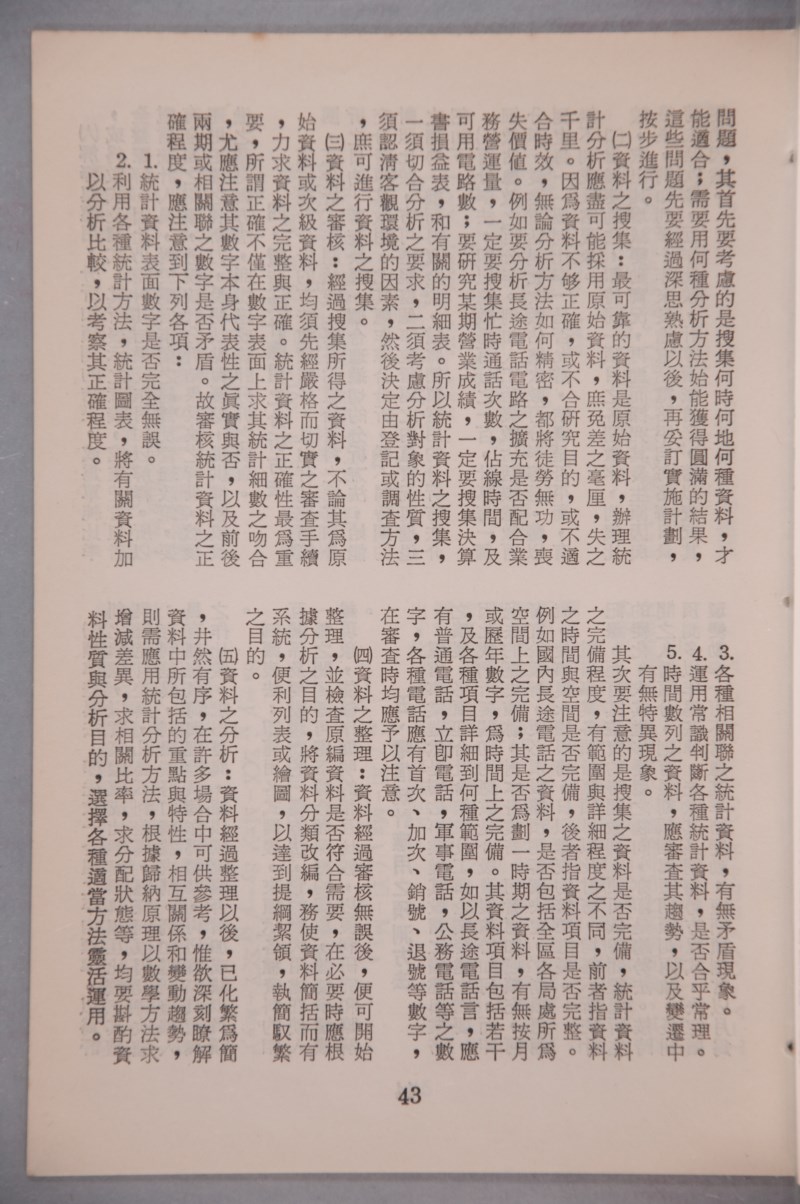 問題，其首先要考慮的是搜集何時何地何種資料，才
能適合；需要用何種分析方法始能獲得圓滿的結果，
這些問題先要經過深思熟慮以後，再妥訂實施計劃，
按步進行。
㈡資料之搜集：最可靠的資料是原始資料，辦理統
計分析應盡可能採用原始資料，庶免差之毫厘，失之
千里。因為資料不够正確，或不合研究目的，或不適
合時效，無論分析方法如何精密，都將徒勞無功，喪
失價值。例如要分析長途電話電路之擴充是否配合業
務營運量，一定要搜集忙時通話次數，佔線時間，及
可用電路數；要研究某期營業成績，一定要搜集決算
書損益表，和有關的明細表。所以統計資料之搜集，
一須切合分析之要求，二須考慮分析對象的性質，三
須認清客觀環境的因素，然後決定由登記或調查方法
，庶可進行資料之搜集。
㈢資料之審核：經過搜集所得之資料，不論其為原
始資料或次級資料，均須先經嚴格而切實之審查手續
，力求資料之完整與正確。統計資料之正確性最為重
要，所謂正確不僅在數字表面上求其統計細數之吻合
，尤應注意其數字本身代表性之眞實與否，以及前後
兩期或相關聯之數字是否矛盾。故審核統計資料之正
確程度，應注意到下列各項：
1.統計資料表面數字是否完全無誤。
2.利用各種統計方法，統計圖表，將有關資料加
以分析比較，以考察其正確程度。
3.各種相關聯之統計資料，有無矛盾現象。
4.運用常識判斷各種統計資料，是否合乎常理。
5.時間數列之資料，應審查其趨勢，以及變遷中
有無特異現象。
其次要注意的是搜集之資料是否完備，統計資料
之完備程度，有範圍與詳細程度之不同，前者指資料
之時間與空間是否完備，後者指資料項目是否完整。
例如國內長途電話之資料，是否包括全區各局處所為
空間上之完備；其是否為劃一時期之資料，有無按月
或歷年數字，為時間上之完備。其資料項目包括若干
，及各種項目詳細到何種範圍，如以長途電話言，應
有普通電話，立卽電話，軍事電話，公務電話等之數
字，各種電話應有首次、加次、銷號、退號等數字，
在審查時均應予以注意。
㈣資料之整理：資料經過審核無誤後，便可開始
整理，並檢查原編資料是否符合需要，在必要時應根
據分析之目的，將資料分類改編，務使資料簡括而有
系統，便利列表或繪圖，以達到提綱絜領，執簡馭繁
之目的。
㈤資料之分析：資料經過整理以後，已化繁為簡
，井然有序，在許多場合中可供參考，惟欲深刻瞭解
資料中所包括的重點與特性，相互關係和變動趨勢，
則需應用統計分析方法，根據歸納原理以數學方法求
增減差異，求相關比率，求分配狀態等，均要斟酌資
料性質與分析目的，選擇各種適當方法靈活運用。
43